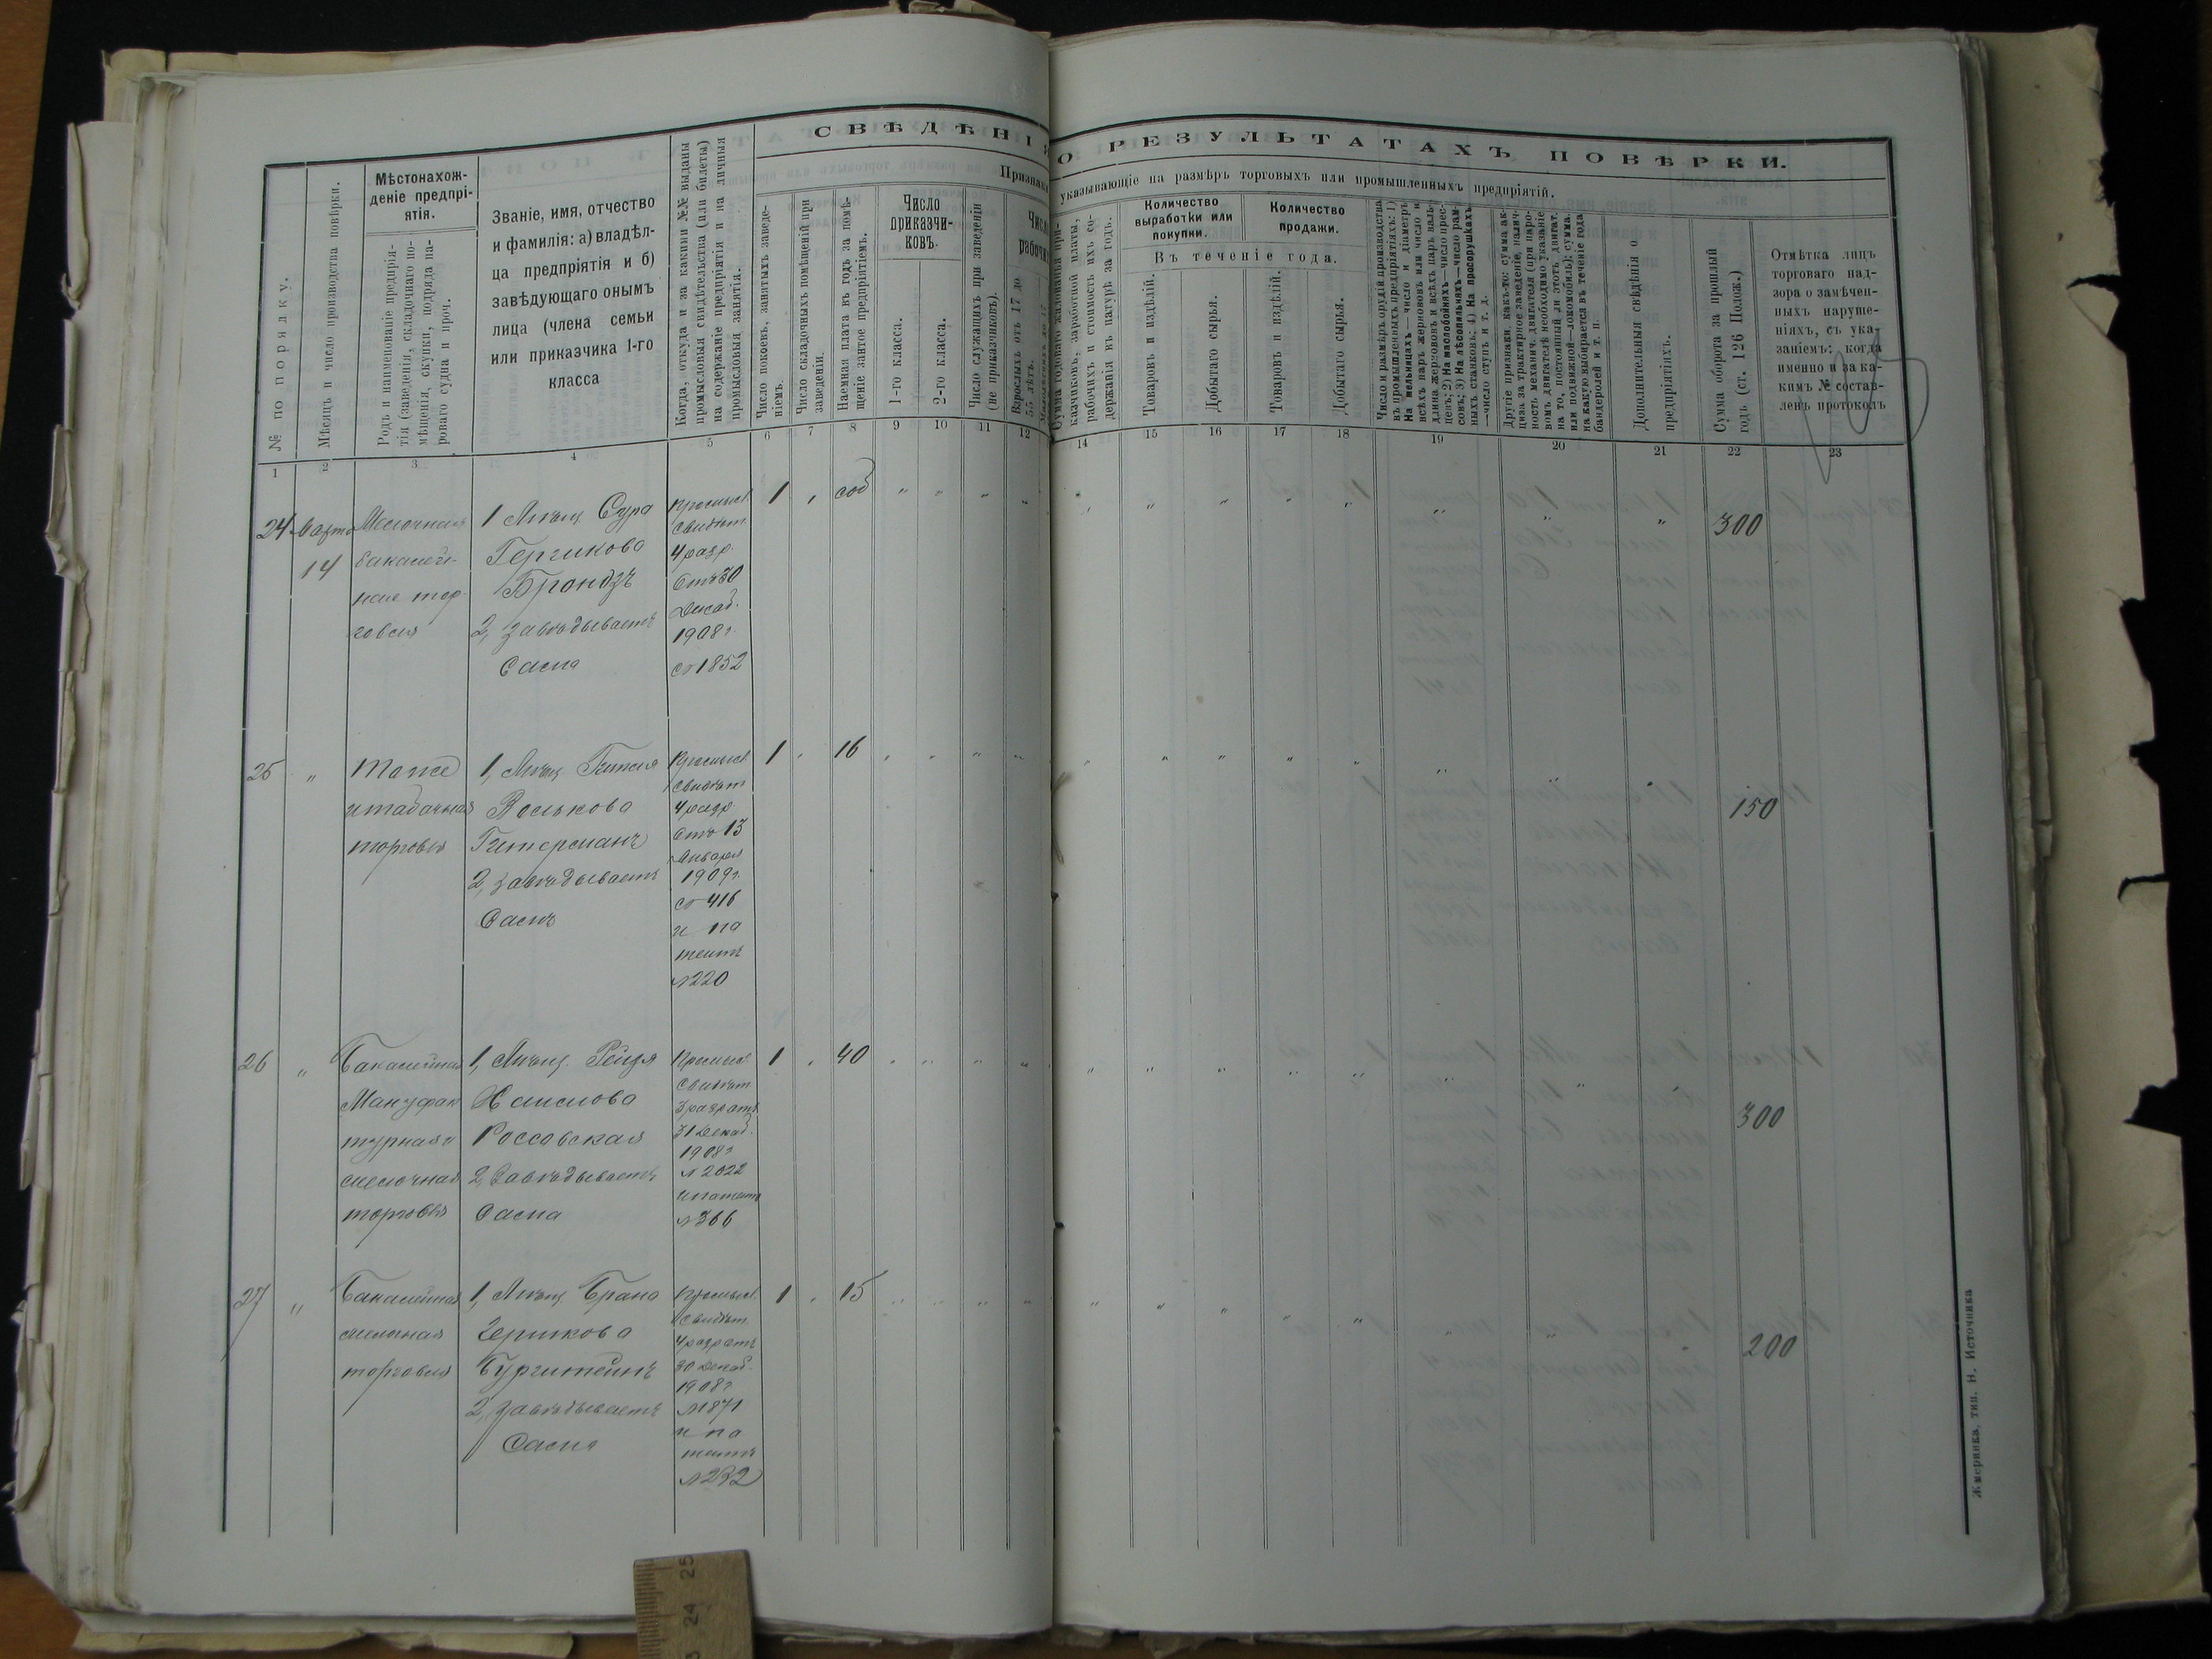 СВѢДѢНІЯ О РЕЗУЛЬТАТАХЪ ПОВѢРКИ.
Признаки, указывающіе на размѣръ торговыхъ или промышленныхъ предпріятій.
№ по порядку.
Мѣсяцъ и число производства повѣрки.
Мѣстонахож-
деніе предпрі-
ятія.
Родъ и наименованіе предпрія-
тія (заведенія, складочнаго по-
мѣщенія, скупки, подряда па-
роваго судна и проч.
Званіе, имя, отчество
и фамилія: а) владѣл-
ца предпріятія и б)
завѣдующаго онымъ
лица (члена семьи
или приказчика 1-го
класса
Когда, откуда и за какими №№ выданы
промысловыя свидѣтельства (или билеты)
на содержаніе предпріятія и на личныя
промысловыя занятія.
Число покоевъ, занятыхъ заведе-
ніемъ.
Число складочныхъ помѣщеній при
заведеніи.
Наемная плата въ годъ за помѣ-
щеніе зантое предпріятіемъ.
Число
приказчи-
ковъ.
1-го класса.
2-го класса.
Число служащихъ при заведеніи
(не приказчиковъ).
Число
рабочихъ
Взрослыхъ отъ 17 до
55 лѣтъ.
Сумма годоваго жалованья при-
казчиковъ, заработной платы,
рабочихъ и стоимость ихъ со-
держанія въ натурѣ за годъ.
Количество
выработки или
покупки.
Количество
продажи.
Въ теченіе года.
Товаровъ и издѣлій.
Добытаго сырья.
Товаровъ и издѣлій.
Добытаго сырья.
Число и размѣръ орудій производства
въ промышленныхъ предпріятіяхъ: 1)
На мельницахъ — число и діаметръ
всѣхъ паръ жернововъ или число и
длина жернововъ и всѣхъ паръ валь-
цевъ; 2) На маслобойняхъ—число прес-
совъ; 3) На лѣсопильняхъ—число рам-
ныхъ станковъ; 4) На просорушкахъ
—число ступъ и т. д.
Другіе признаки, какъ-то: сумма ак-
циза за трактирное заведеніе, налич-
ность механич. двигателя (при паро-
вомъ двигателѣ необходимо указаніе
на то, постоянный ли этотъ двигат.
или подвижной—локомобиль); сумма,
на какую выбирается въ теченіе года
бандеролей и т. п.
Дополнительныя свѣдѣнія о
предпріятіяхъ.
Сумма оборота за прошлый
годъ (ст. 126 Полож.)
Отмѣтка лицъ
торговаго над-
зора о замѣчен-
ныхъ наруше-
ніяхъ, съ ука-
заніемъ: когда
именно и за ка-
кимъ № состав-
ленъ протоколъ
1 2 3 4 5 6 7 8 9 10 11 12 14 15 16 17 18 19 20 21 22 23
24 Марта 14
Мелочная
бакалей-
ная тор
говля
1 Мѣщ. Сура
Гершкова
Брондзъ
2, завѣдываетъ
Сама
Промысл.
свидѣт.
4 разр.
Отъ 30
Декаб.
1908 г.
№ 1852
1 " соб " " " "
300
25 "
Тоже
и табачная
торговля
1, Мѣщ. Гитля
Волькова
Гитерманъ
2, завѣдываетъ
Самъ
Промысл
свидѣт
4 разр.
Отъ 13
Января
1909 г.
№ 416
и па
тентъ
№ 220
1 " 16 " " " "
150
26 "
Бакалейная
Мануфак
турная и
мелочная
торговля
1, Мѣщ. Рейзя
Хаимова
Россовская
2, Завѣдываетъ
Сама
Промысл
свидѣт
3 разр отъ
31 Декаб.
1908 г
№ 2022
и патентъ
№ 366
1 " 40 " " " "
300
27 "
Бакалейная
мелочная
торговля
1, Мѣщ. Брана
Гершкова
Бурштейнъ
2, завѣдываетъ
Сама
Промысл.
свидѣт.
4 разр отъ
30 Декаб.
1908 г.
№ 1871
и па
тентъ
№ 232
1 " 15 " " " "
200
Жмеринка, тип. Н. Источника
24 25